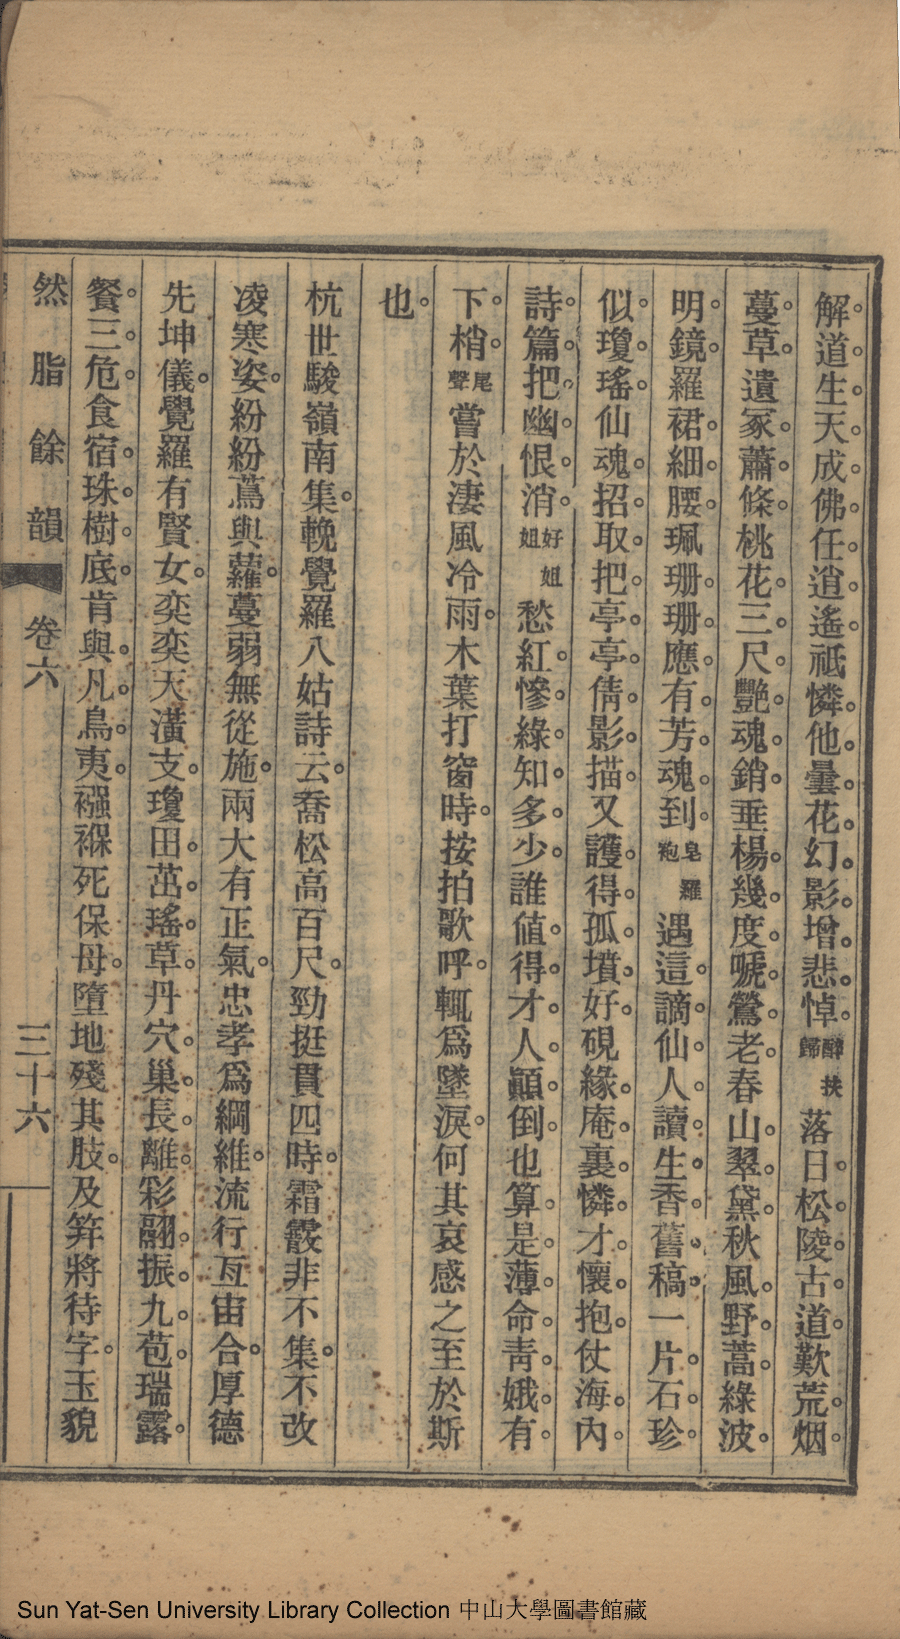 解道生天成佛任逍遙祗憐他曇花幻影增悲悼醉扶歸落日松陵古道歎荒烟
蔓草遺冢蕭條桃花三尺艷魂銷垂楊幾度嗁鶯老春山翠黛秋風野蒿綠波
明鏡羅裙細腰珮珊珊應有芳魂到皂羅袍遇這謫仙人讀生香舊稿一片石珍
似瓊瑤仙魂招取把亭亭倩影描又護得孤墳好硯緣庵裏憐才懷抱仗海內
詩篇把幽恨消好姐姐愁紅慘綠知多少誰值得才人顚倒也算是薄命靑娥有
下梢尾聲嘗於淒風冷雨木葉打窗時按拍歌呼輒爲墜淚何其哀感之至於斯
也
杭世駿嶺南集輓覺羅八姑詩云喬松高百尺勁挺貫四時霜霰非不集不改
凌寒姿紛紛蔦與蘿蔓弱無從施兩大有正氣忠孝爲綱維流行亙宙合厚德
先坤儀覺羅有賢女奕奕天潢支瓊田茁瑤草丹穴巢長離彩翮振九苞瑞露
餐三危食宿珠樹底肯與凡鳥夷襁褓死保母墮地殘其肢及笄將待字玉貌
然脂餘韻 卷六 三十六
Sun Yat-Sen University Library Collection 中山大學圖書館藏